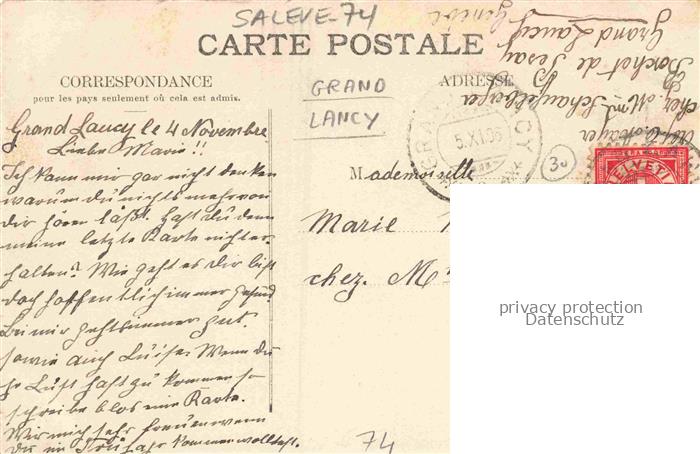 SALEVE-74
Genève
CARTE POSTALE
CORRESPONDANCE
pour les pays seulement où cela est admis.
ADRESSE
GRAND
LANCY
GRAND LANCY
5.XI.06
30
HELVETIA
Grand Lancy
Mayer
chez Mme Schaufelberger
Grand Lancy le 4 Novembre
Liebe Marie!!
Ich kann mir gar nicht denken
warum du nichts mehr von
dir hören läßt. Hast du denn
meine letzte Karte nicht er-
halten? Wie geht es dir bist
doch hoffentlich immer gesund
bei mir geht's immer gut.
sowie auch Luise. Wenn du
so Lust hast zu kommen so
schreibe blos eine Karte.
Wir mich sehr freuen wenn
du im Frühjahr kommen wolltest.
Mademoiselle
Marie
chez. M
privacy protection
Datenschutz
74